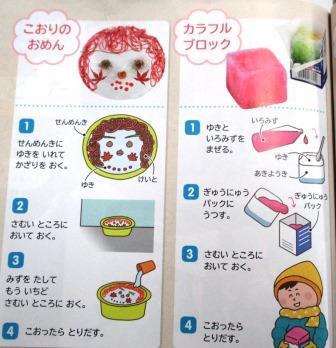 こおりの
おめん
1
せんめんき
せんめんきに
ゆきを いれて
かざりを おく。
ゆき
けいと
2
さむい ところに
おいて おく。
3
みずを たして
もう いちど
さむい ところに おく。
4
こおったら とりだす。
カラフル
ブロック
1
ゆきと
いろみずを
まぜる。
いろみず
ゆき
あきようき
2
ぎゅうにゅう
パックに
うつす。
ぎゅうにゅう
パック
3
さむい ところに
おいて おく。
4
こおったら
とりだす。